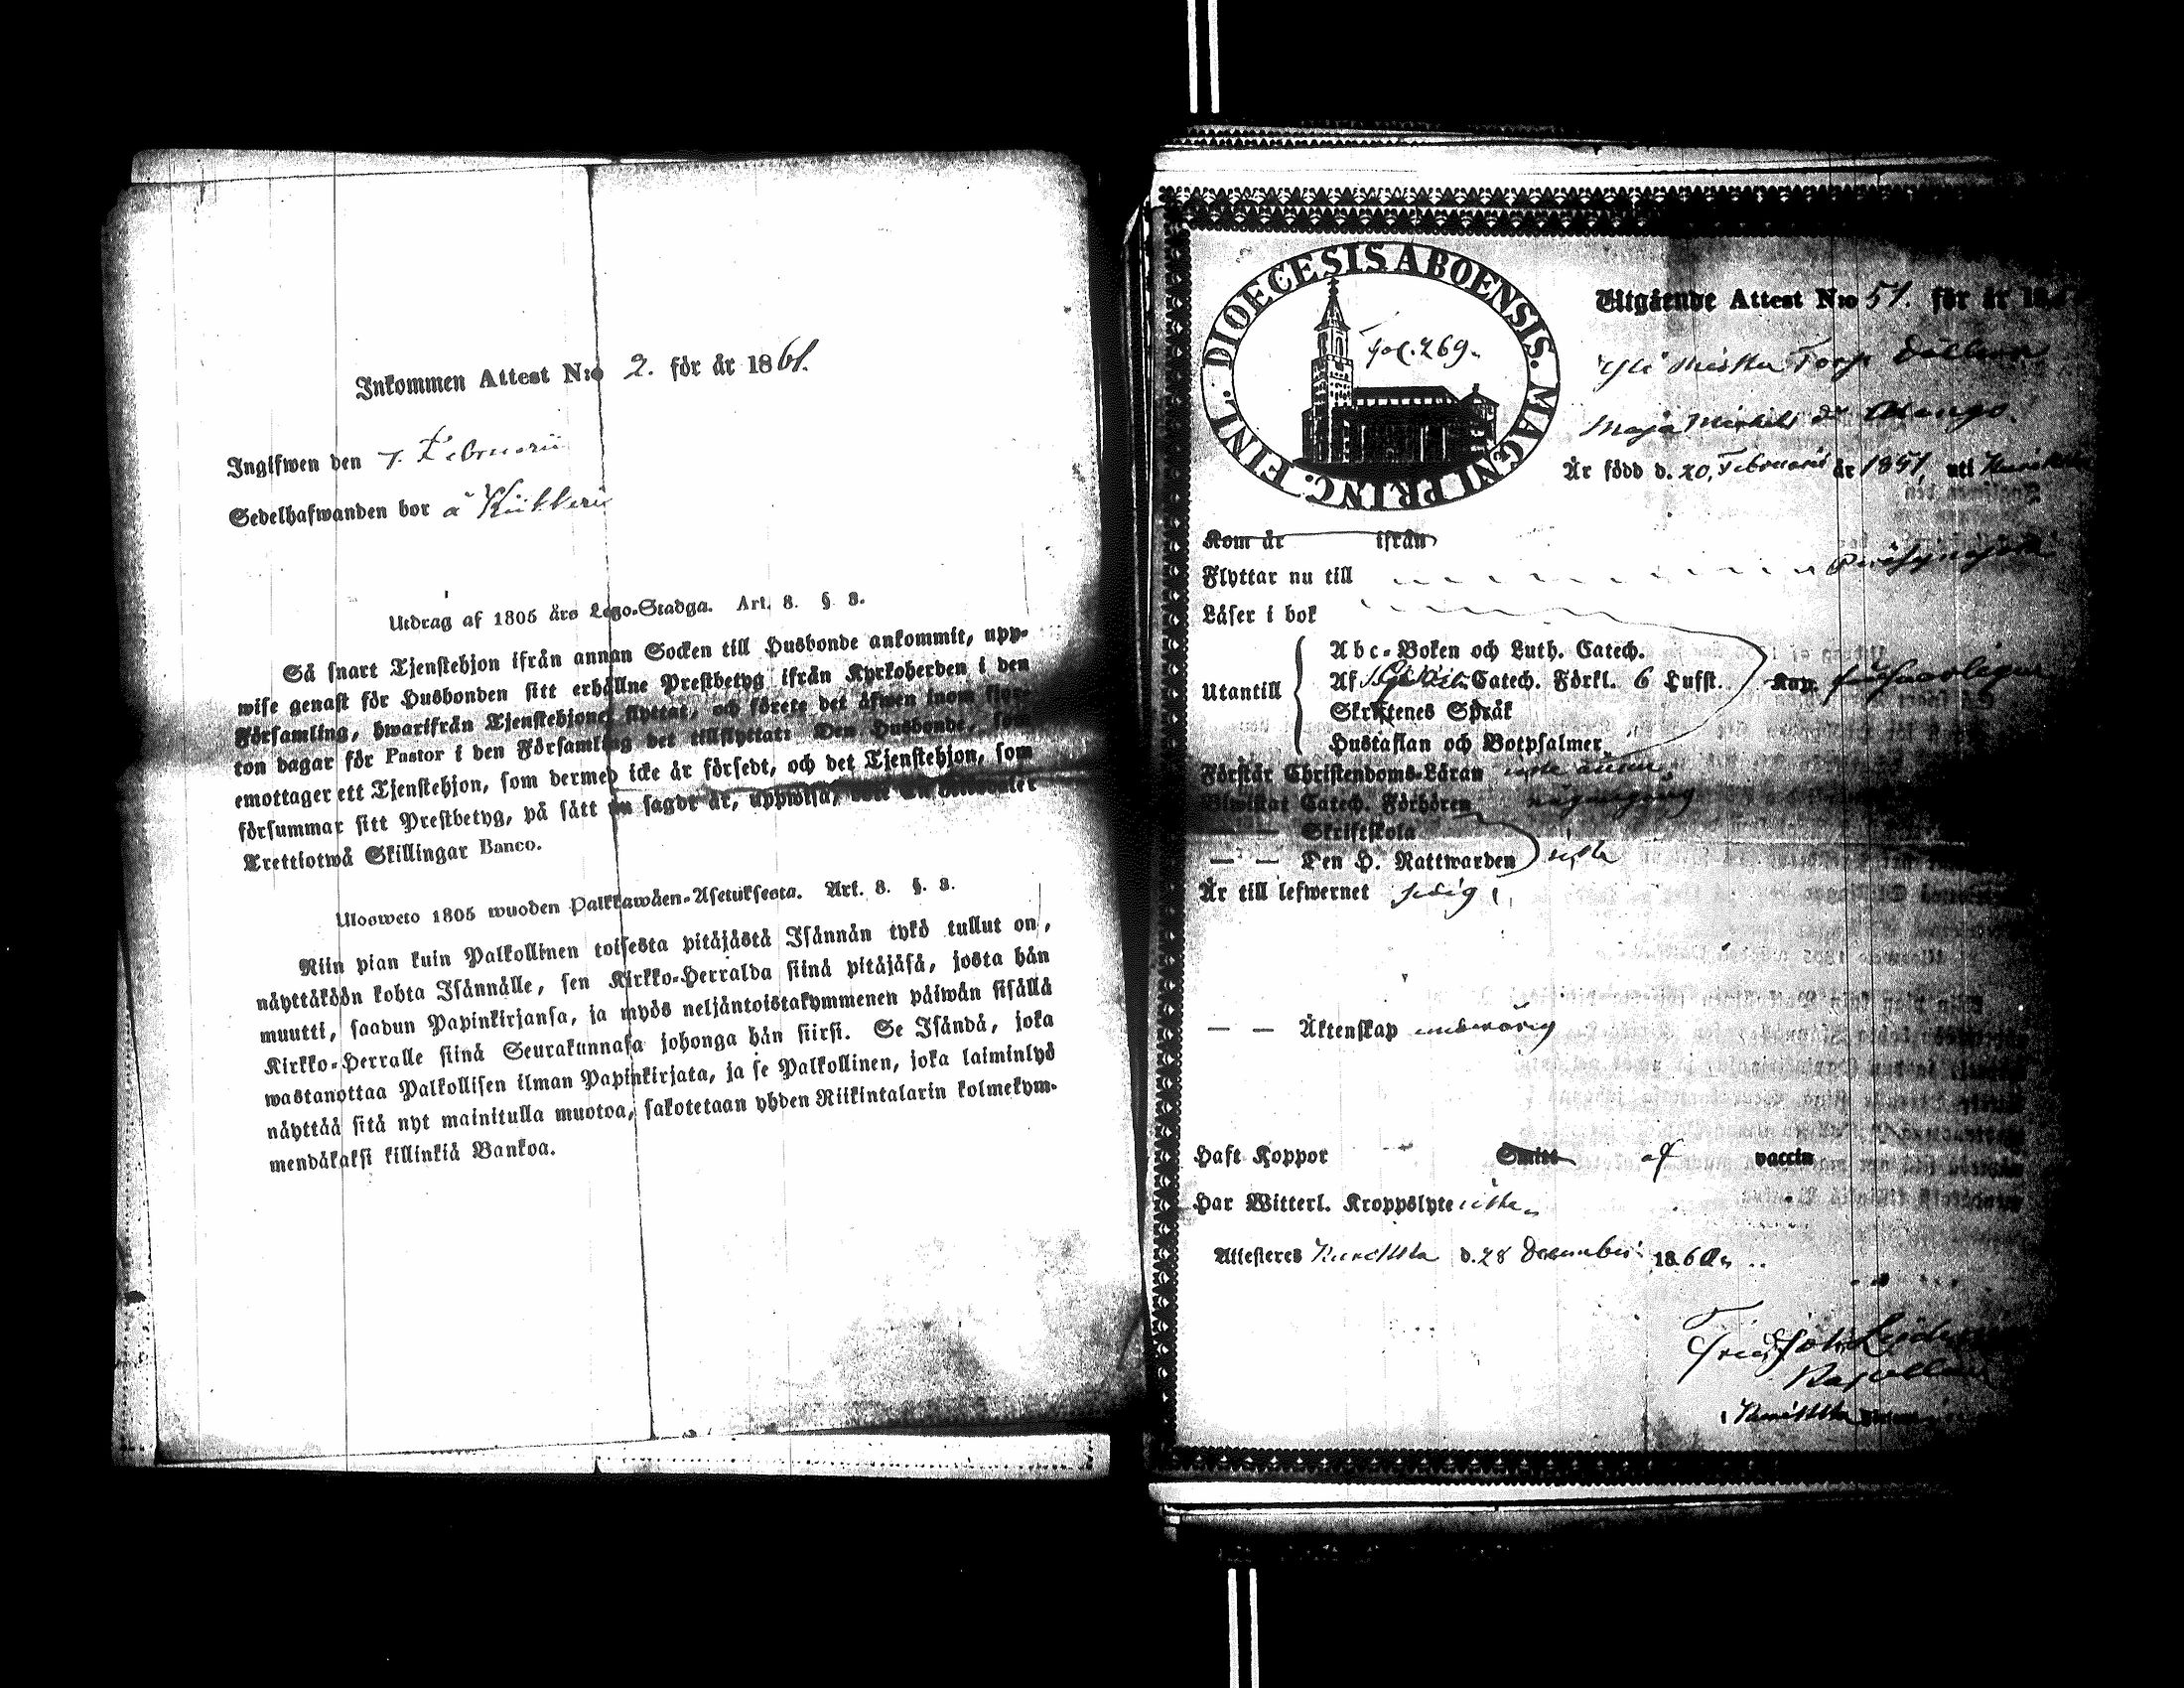 Inkommen Attest N:o 2. för år 1861.
Ingifwen den 7. Februarii
Sedelhafwanden bor å Kiikkeri
Utdrag af 1805 års Lego-Stadga. Art. 8. § 8.
Så snart Tjenstehjon ifrån annan Socken till Husbonde ankommit, upp-
wise genast för Husbonden sitt erhållne Prestbetyg ifrån Kyrkoherden i den
Församling, hwarifrån Tjenstehjonet flyttat, och förete det äfwen inom fjor-
ton dagar för Pastor i den Församling det tillflyttat: Den Husbonde, som
emottager ett Tjenstehjon, som dermed icke är försedt, och det Tjenstehjon, som
försummar sitt Prestbetyg, på sätt nu sagdt är, uppwisa,
Trettiotwå Skillingar Banco.
Ulosweto 1805 wuoden Palkkawäen-Asetuksesta. Art. 8. §. 8.
Niin pian kuin Palkollinen toisesta pitäjästä Isännän tykö tullut on,
näyttäköön kohta Isännälle, sen Kirkko-Herralda siinä pitäjäsä, josta hän
muutti, saadun Papinkirjansa, ja myös neljäntoistakymmenen päiwän sisällä
Kirkko-Herralle siinä Seurakunnasa johonga hän siirsi. Se Isändä, joka
wastanottaa Palkollisen ilman Papinkirjata, ja se Palkollinen, joka laiminlyö
näyttää sitä nyt mainitulla muotoa, sakotetaan yhden Riikintalarin kolmekym-
mendäkaksi killinkiä Bankoa.
DIOECESIS ABOENSIS. MAGNI PRINC. FINL.
fol. 269.
Utgående Attest N:o 51. för år 18
Torp
Maja Michels dr
Är född d. 20 Februarii år 1851, uti
Kom år ifrån
Flyttar nu till
Läser i bok
Utantill
Abc-Boken och Luth. Catech.
Af Catech. Förkl. 6 Lufst.
Skriftenes Språk
Hustaflan och Botpsalmer
Förstår Christendoms-Läran
Biwistat Catech. Förhören någongång
— — Skriftskola
— — Den H. Nattwarden icke
Är till lefwernet sedig
— — Äktenskap underårig
Haft Koppor Smitt af vaccin
Har Witterl. Kroppslyte icke
Attesteres d. 28 December 1860.
Kapellan